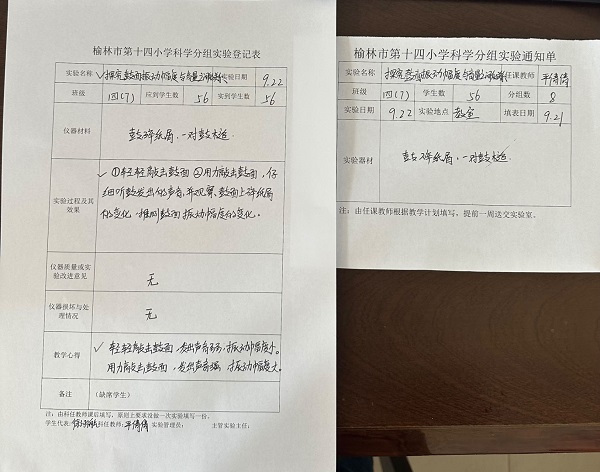 榆林市第十四小学科学分组实验登记表
实验名称 探究鼓面振动幅度与音量 实验日期 9.22
班级 四(7) 应到学生数 56 实到学生数 56
仪器材料 鼓 碎纸屑、一对鼓
实验过程及其效果 ①轻轻敲击鼓面 ②用力敲击鼓面,仔
细听鼓发出的声音,并观察鼓面上碎纸屑
的变化,推测鼓面振动幅度的变化。
仪器质量或实验改进意见 无
仪器损坏与处理情况 无
教学心得 轻轻敲击鼓面,发出声音弱,振动幅度小。
用力敲击鼓面,发出声音强,振动幅度大。
备注 (缺席学生)
注:由科任教师课后填写,原则上要求没做一次实验填写一份。
学生代表: 科任教师: 实验管理员: 主管实验主任:
榆林市第十四小学科学分组实验通知单
实验名称 探究鼓面振动幅度与音量 任课教师
班级 四(7) 学生数 56 分组数 8
实验日期 9.22 实验地点 教室 填表日期 9.21
实验器材 鼓 碎纸屑、一对鼓
注:由任课教师根据教学计划填写,提前一周送交实验室。